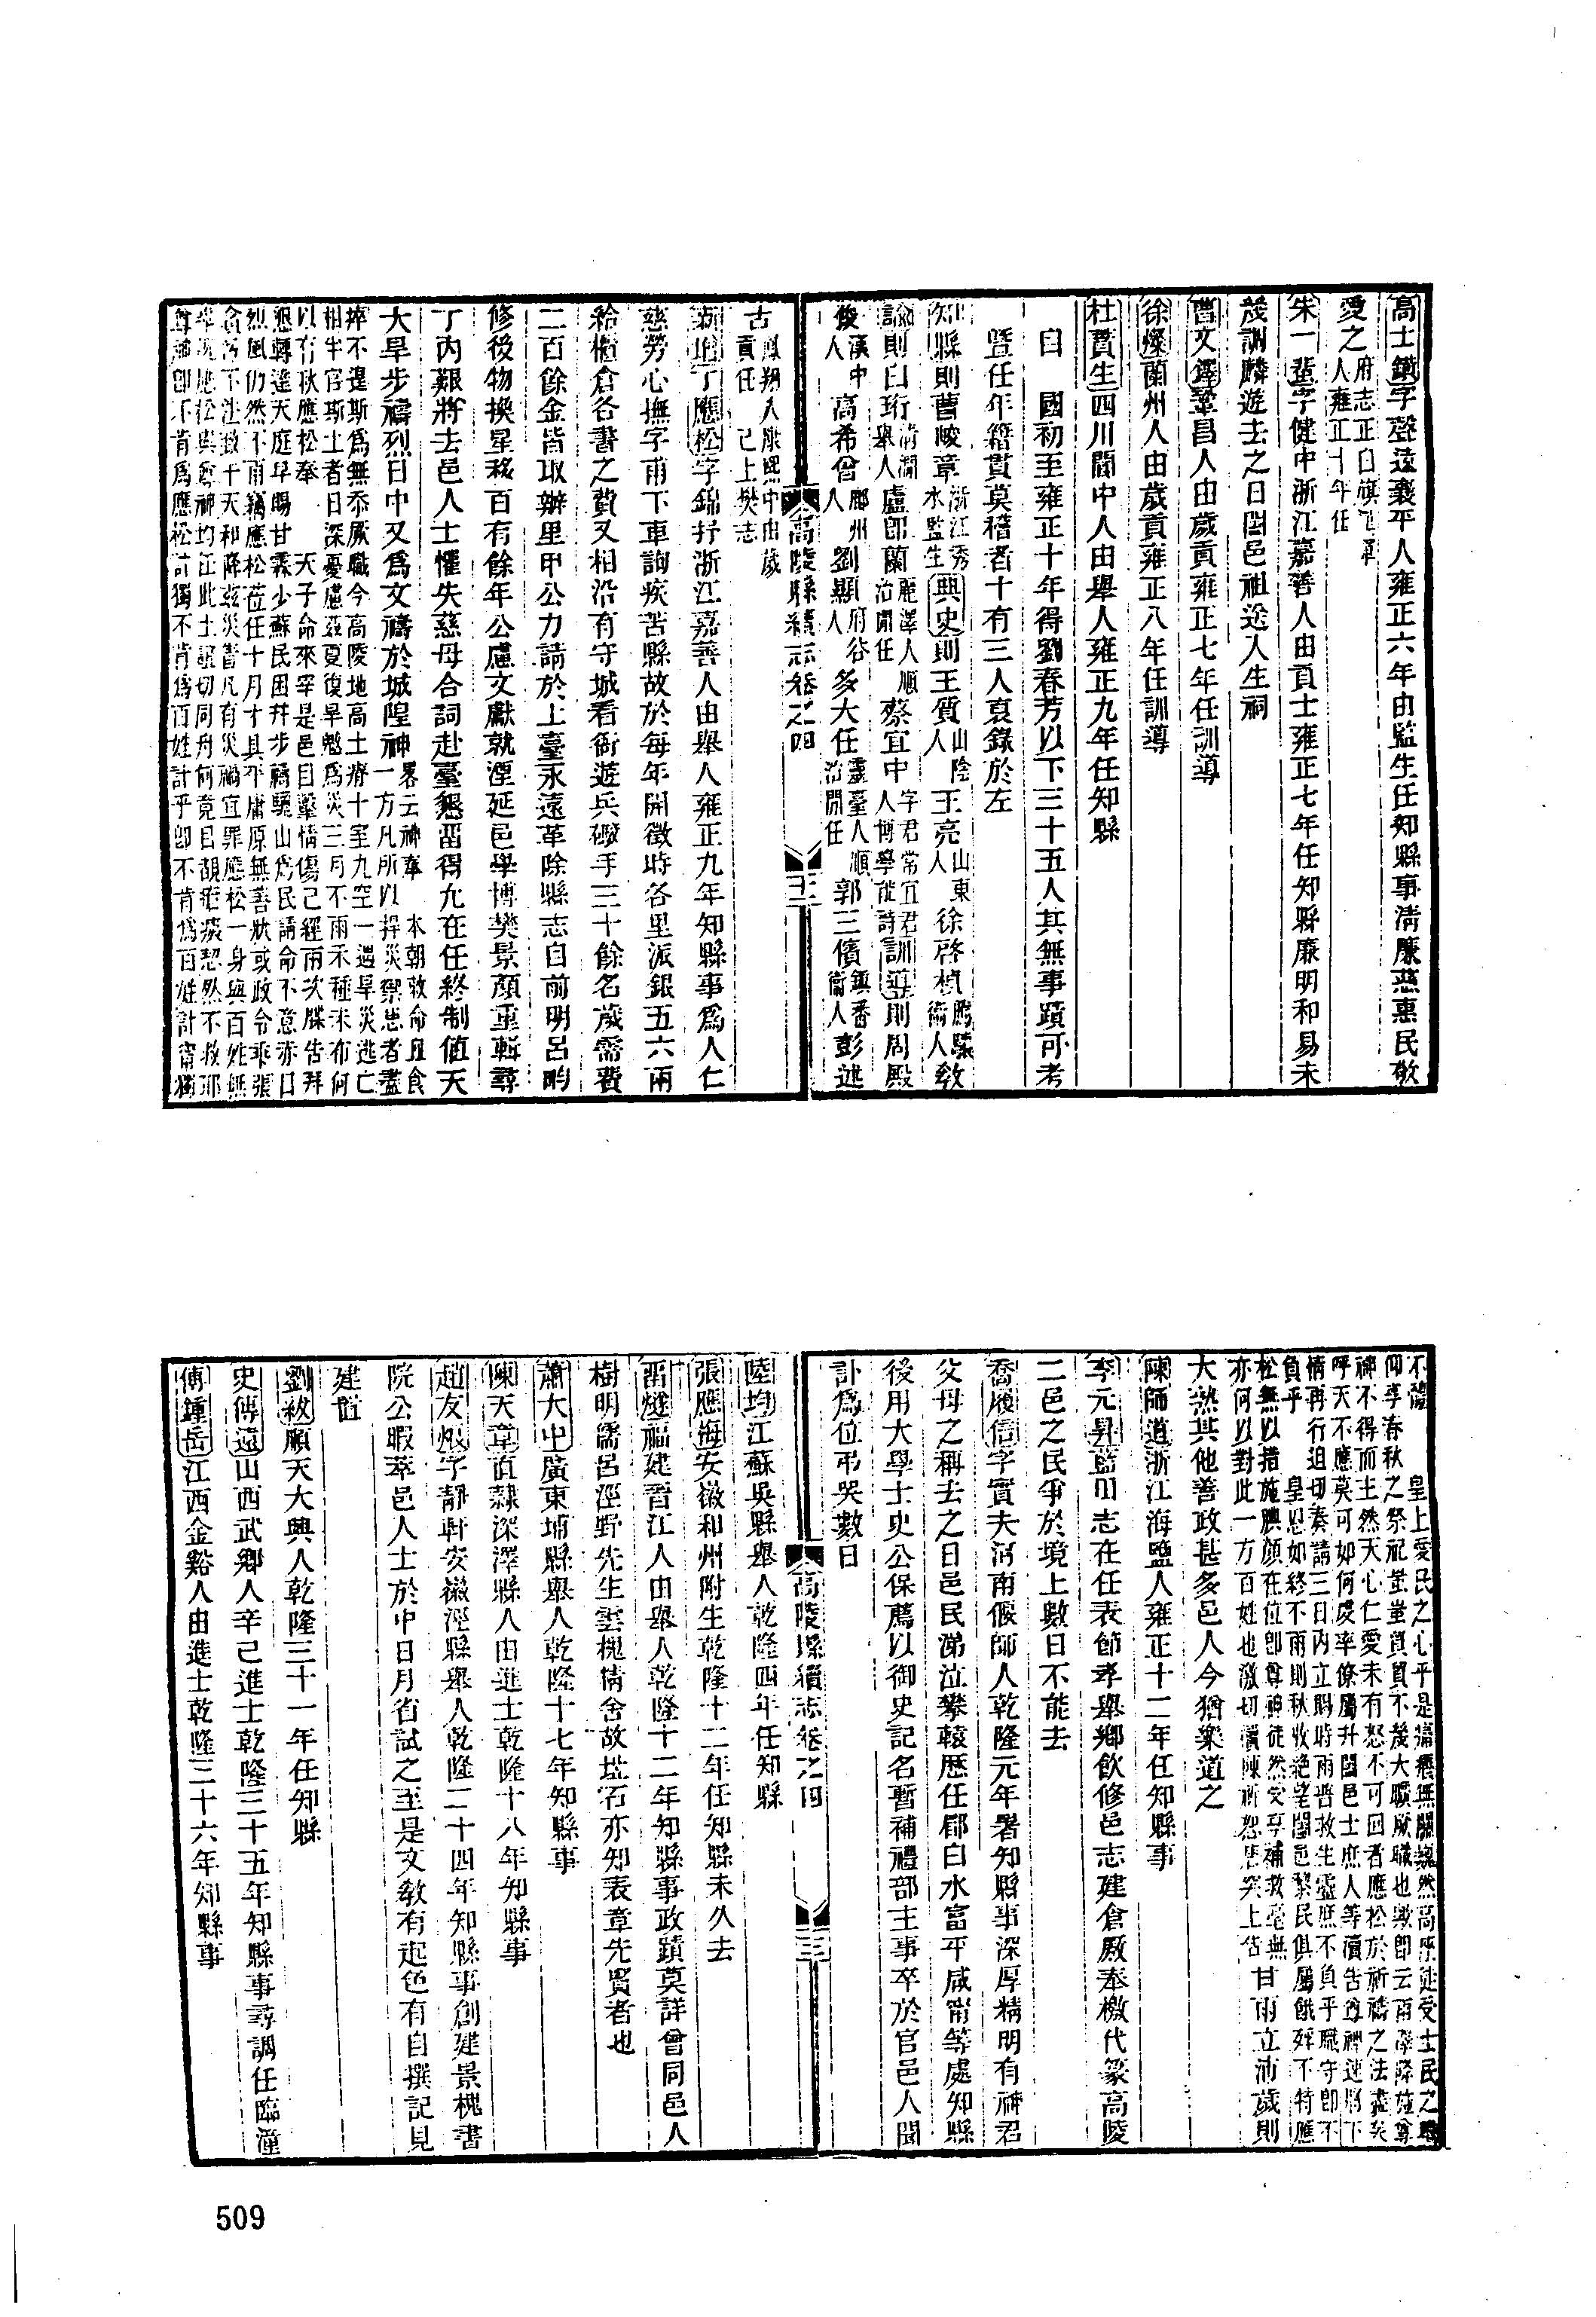 高士鐄字聲遠襄平人雍正六年由監生任知縣事清廉慈惠民敬
愛之府志正白旗
人雍正十年任
朱一蜚字健中浙江嘉善人由貢士雍正七年任知縣廉明和易未
幾調麟遊去之日闔邑祖送人生祠
曹文鐸鞏昌人由歲貢雍正七年任訓導
徐燦蘭州人由歲貢雍正八年任訓導
杜贊生四川閬中人由舉人雍正九年任知縣
曰　國初至雍正十年得劉春芳以下三十五人其無事蹟可考
暨任年籍貫莫稽者十有三人裒錄於左
知縣則曹峻章浙江秀水監生典史則王質山陰人王亮山東人徐啓楨衛人教
諭則白珩清澗舉人盧卽蘭蔡宜中人字君常宜君博學能詩訓導則周殿
俊漢中人高希曾鄜州人劉顯府谷人多大任靈臺人順治間任郭三儐鎮番衛人彭述
古鳳翔人康熙中由歲貢任　已上樊志
高陵縣續志卷之四
新增丁應松字錦抒浙江嘉善人由舉人雍正九年知縣事爲人仁
慈勞心撫字甫下車詢疾苦縣故於每年開徵時各里派銀五六兩
給櫃倉各書之費又相沿有守城看衙遊兵礮手三十餘名歲需費
二百餘金皆取辦里甲公力請於上臺永遠革除縣志自前明呂柟
修後物換星移百有餘年公慮文獻就湮延邑學博樊景顏重輯尋
丁內艱將去邑人士懼失慈母合詞赴臺懇留得允在任終制值天
大旱步禱烈日中又爲文禱於城隍神畧云神奉　本朝敕命血食
一方凡所以捍災禦患者盡
不提斯爲無忝厥職今高陵地高土瘠十室九空一遇旱災逃亡
相半官斯土者日深憂慮茲夏復旱魃爲災三月不雨禾種未布何
以有秋應松奉　天子命來宰是邑目擊情傷已經兩次牒告拜
懇轉達天庭早賜甘霖少蘇民困幷步禱驪山爲民請命不意赤日
烈風仍然不雨竊應松莅任十月才具平庸原無善狀或政令乖張
不法致干天和降茲災眚凡有災禍宜罪應松一身與百姓無
尊神卽不肯爲應松計獨不肯爲百姓計乎卽不肯爲百姓計甯獨
不體　皇上愛民之心乎是痛癢無關巍然高座徒受士民之瞻
仰享春秋之祭祀
神不得而主然天心仁愛未有怒不可回者應松於祈禱之法盡矣
呼天不應莫可如何虔率僚屬幷闔邑士庶人等瀆告尊神速賜下
情再行迫切奏請三日內立賜時雨普救生靈庶不負乎職守卽不
負乎　皇恩如終不雨則秋收絕望闔邑黎民俱屬餓殍不特應
松無以措施腆顏在位卽尊神徒然安享補救毫無
亦何以對此一方百姓也激切瀆陳祈恕唐突上告甘雨立沛歲則
大熟其他善政甚多邑人今猶樂道之
陳師道浙江海鹽人雍正十二年任知縣事
李元昇藍田志在任表節孝舉鄉飲修邑志建倉廒奉檄代篆高陵
二邑之民爭於境上數日不能去
喬履信字實夫河南偃師人乾隆元年署知縣事深厚精明有神君
父母之稱去之日邑民涕泣攀轅歷任郿白水富平咸甯等處知縣
後用大學士史公保薦以御史記名暫補禮部主事卒於官邑人聞
訃爲位弔哭數日
高陵縣續志卷之四
陸均江蘇吳縣舉人乾隆四年任知縣
張應海安徽和州附生乾隆十二年任知縣未久去
雷燧福建晋江人由舉人乾隆十二年知縣事政蹟莫詳曾同邑人
樹明儒呂涇野先生雲槐精舍故址石亦知表章先賢者也
蕭大中廣東埔縣舉人乾隆十七年知縣事
陳天章直隸深澤縣人由進士乾隆十八年知縣事
趙友烺字靜軒安徽涇縣舉人乾隆二十四年知縣事創建景槐書
院公暇萃邑人士於中日月省試之至是文敎有起色有自撰記見
建置
劉紱順天大興人乾隆三十一年任知縣
史傳遠山西武鄉人辛巳進士乾隆三十五年知縣事尋調任臨潼
傅鍾岳江西金谿人由進士乾隆三十六年知縣事
509